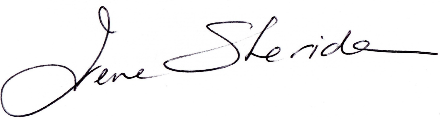 Irene Sheridan